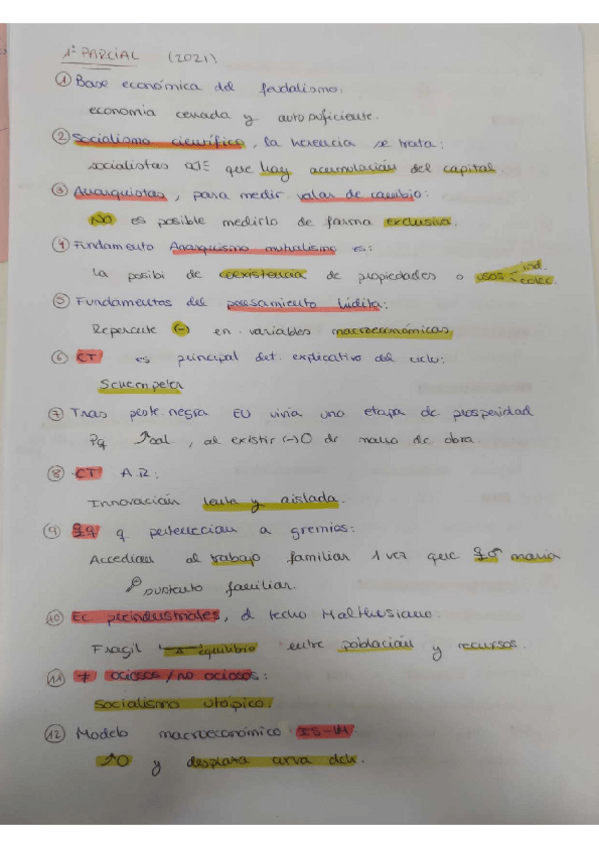 1º PARCIAL (2021)
① Base económica del feudalismo.
economía cerrada y autosuficiente.
② Socialismo científico, la herencia se trata:
socialistas que hay acumulación del capital.
③ Anarquistas, para medir valor de cambio:
No es posible medirlo de forma exclusiva.
④ Fundamento Anarquismo mutualismo es:
la posibi de coexistencia de propiedades o usos ind.
colec.
⑤ Fundamentos del pensamiento ludita:
Repercute (-) en variables macroeconómicas
⑥ CT es principal det. explicativo del ciclo:
Schumpeter
⑦ Tras peste negra EU vivía una etapa de prosperidad
Pq ↑sal, al existir (-) O de mano de obra.
⑧ CT A.R:
Innovación lenta y aislada.
⑨ q pertenecían a gremios:
Accedían al trabajo familiar 1 vez que moría
sustento familiar.
⑩ EC preindustriales, el techo Malthusiano.
Fragil equilibrio entre población y recursos.
⑪ ≠ ociosos / no ociosos:
Socialismo utópico.
⑫ Modelo macroeconómico IS-LM
↑O y desplaza curva dch.